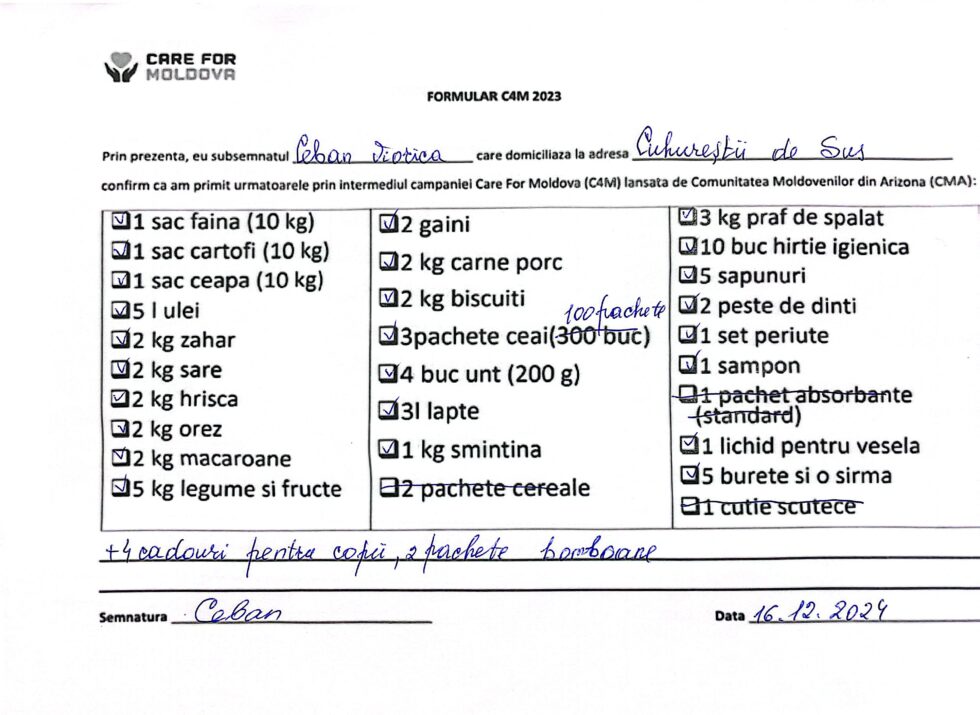 CARE FOR
MOLDOVA
FORMULAR C4M 2023
Prin prezenta, eu subsemnatul Ceban Viorica care domiciliaza la adresa Cuhureștii de Sus
confirm ca am primit urmatoarele prin intermediul campaniei Care For Moldova (C4M) lansata de Comunitatea Moldovenilor din Arizona (CMA):
1 sac faina (10 kg)
1 sac cartofi (10 kg)
1 sac ceapa (10 kg)
5 l ulei
2 kg zahar
2 kg sare
2 kg hrisca
2 kg orez
2 kg macaroane
5 kg legume si fructe
2 gaini
2 kg carne porc
2 kg biscuiti
100 pachete
3pachete ceai(300 buc)
4 buc unt (200 g)
3l lapte
1 kg smintina
2 pachete cereale
3 kg praf de spalat
10 buc hirtie igienica
5 sapunuri
2 peste de dinti
1 set periute
1 sampon
1 pachet absorbante
(standard)
1 lichid pentru vesela
5 burete si o sirma
1 cutie scutece
+4 cadouri pentru copii, 2 pachete bomboane
Semnatura Ceban
Data 16.12.2024